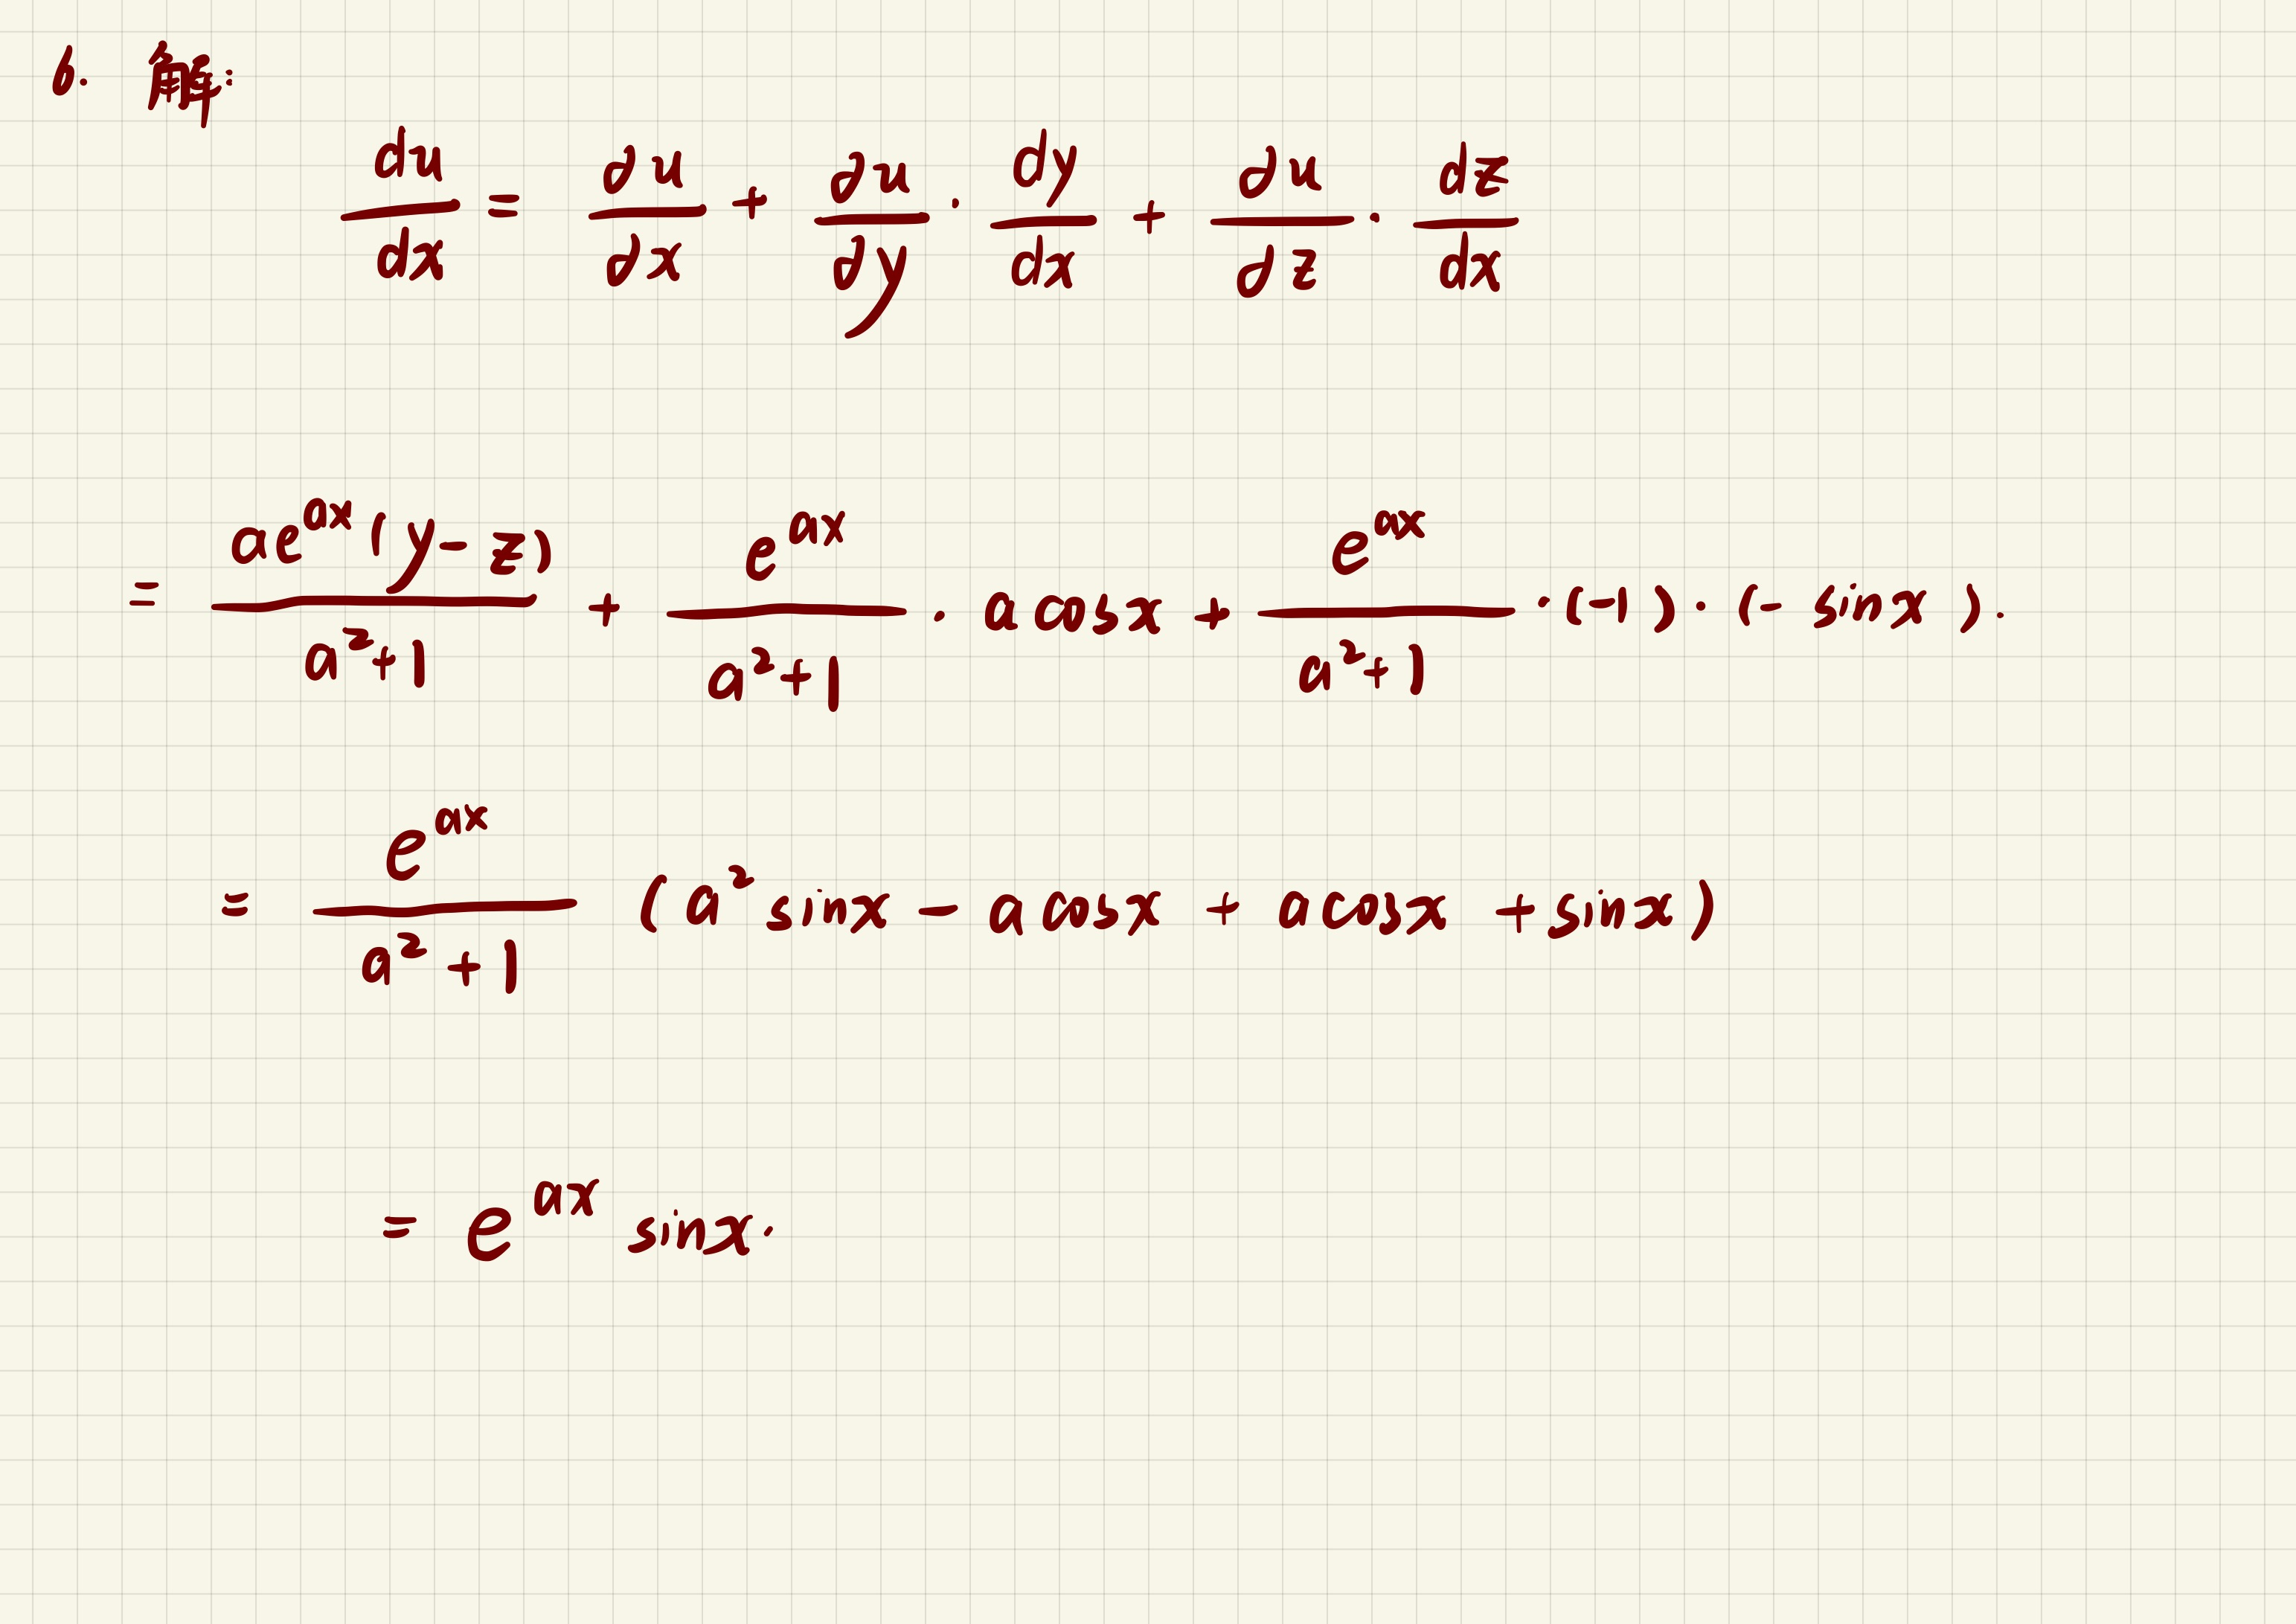 6. 解:
du/dx = ∂u/∂x + ∂u/∂y · dy/dx + ∂u/∂z · dz/dx
= ae^{ax}(y-z)/(a²+1) + e^{ax}/(a²+1) · a cosx + e^{ax}/(a²+1) · (-1) · (- sinx).
= e^{ax}/(a²+1) (a² sinx - a cosx + a cosx + sinx)
= e^{ax} sinx.